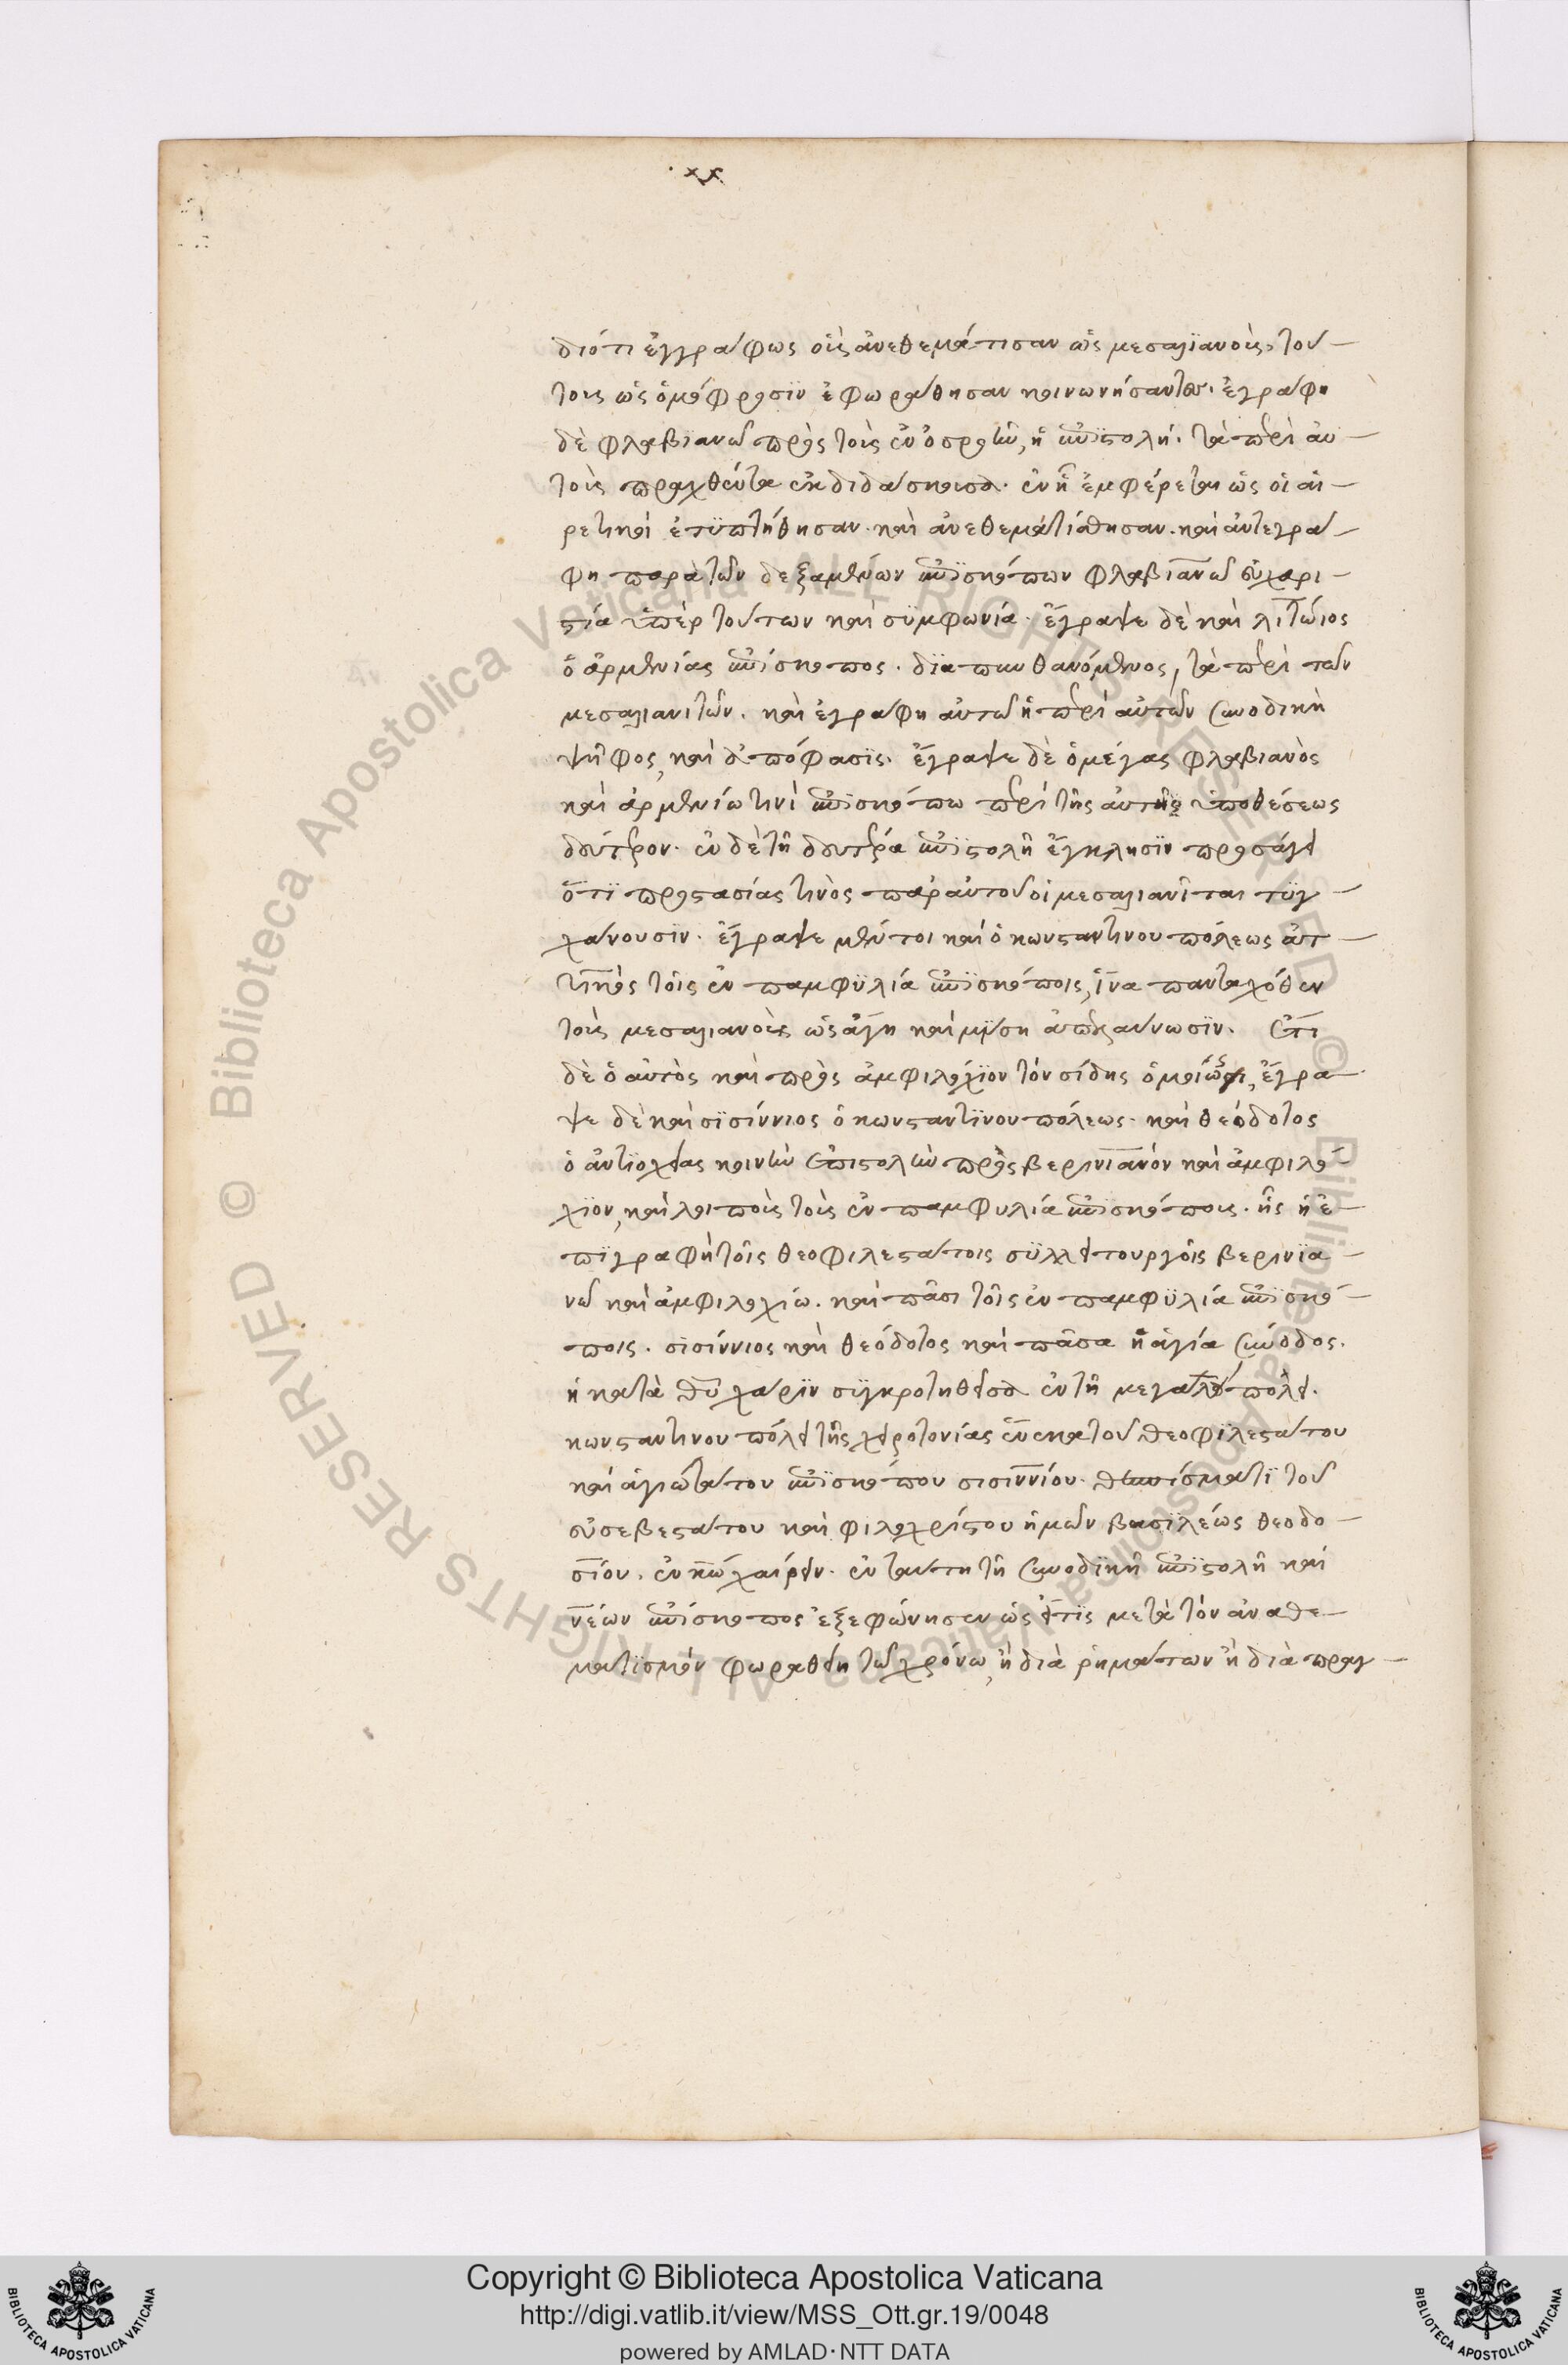 διότι ἐγγράφως οὓς ἀνεθεμάτισαν ὡς μεσαλϊανοὺς, τού-
τοις ὡς ὁμόφροσϊν ἐφωράθησαν κοινωνήσαντες. ἐγράφη
δὲ φλαβϊανῶ πρὸς τοὺς ἐν ὀσροὴν, ἡ ἐπϊστολή. τὰ περὶ αὐ-
τοὺς πραχθέντα ἐκδιδάσκουσα. ἐν ἧ ἐμφέρεται ὡς οἱ αἱ-
ρετικοὶ ἐτϋπτήθησαν. καὶ ἀνεθεματίσθησαν. καὶ ἀντεγρά-
φη παρὰ τῶν δεξαμένων ἐπϊσκόπων φλαβιανῶ εὐχαρι-
στία ὑπὲρ τούτων καὶ σϋμφωνία. ἔγραψε δὲ καὶ λιτώιος
ὁ ἀρμενίας ἐπίσκοπος. δϊαπυνθανόμενος, τὰ περὶ τῶν
μεσαλιανιτῶν. καὶ ἐγράφη αὐτῶ ἡ περὶ αὐτῶν συνοδικὴ
ψῆφος, καὶ ἀπόφασϊς. ἔγραψε δὲ ὁ μέγας φλαβιανὸς
καὶ ἀρμενίω τινὶ ἐπϊσκόπω περὶ τῆς αὐτῆς ὑποθέσεως
δεύτερον. ἐν δὲ τῆ δευτέρα ἐπϊστολῆ ἔγκλησϊν προσάγει
ὅτϊ προστασίας τινὸς παρ' αὐτοῦ οἱ μεσαλιανῖται τϋγ-
χάνουσϊν. ἔγραψε μέντοι καὶ ὁ κωνσταντινουπόλεως ἀτ-
τικὸς τοῖς ἐν παμφϋλία ἐπϊσκόποις, ἵνα πανταχόθεν
τοὺς μεσαλιανοὺς ὡς ἄγη καὶ μύση ἀπελαύνωσϊν. Ἔτι
δὲ ὁ αὐτὸς καὶ πρὸς ἀμφιλόχϊον τὸν σίδης ὁμοίως, ἔγρα-
ψε δὲ καὶ σϊσίννιος ὁ κωνσταντϊνουπόλεως. καὶ θεόδοτος
ὁ ἀντϊοχείας κοινὴν ἐπιστολὴν πρὸς βερινιανὸν καὶ ἀμφιλό-
χϊον, καὶ λοιποὺς τοὺς ἐν παμφυλία ἐπϊσκόποις. ἧς ἡ ἐ-
πϊγραφὴ τοῖς θεοφιλεστάτοις σϋλλειτουργοῖς βερινϊα-
νῶ καὶ ἀμφιλοχίω. καὶ πᾶσι τοῖς ἐν παμφϋλία ἐπϊσκό-
ποις. σϊσίννιος καὶ θεόδοτος καὶ πᾶσα ἡ ἁγία σύνοδος.
ἡ κατὰ θυ χάρϊν σϋγκροτηθεῖσα ἐν τῆ μεγαλοπόλει.
κωνσταντινουπόλει τῆς χειροτονίας ἕνεκα τοῦ θεοφϊλεστάτου
καὶ ἁγιωτάτου ἐπϊσκόπου σισιννίου. θεσπίσματϊ τοῦ
εὐσεβεστάτου καὶ φιλοχρίστου ἡμῶν βασϊλέως θεοδο-
σίου. ἐν κω χαίρειν. ἐν ταύτη τῆ συνοδϊκῆ ἐπϊστολῆ καὶ
νέων ἐπίσκοπος ἐξεφώνησεν ὡς εἴτϊς μετὰ τὸν ἀναθε-
ματϊσμὸν φωραθείη τῶ χρόνω, ἢ διὰ ῥημάτων ἢ διὰ πραγ-
Copyright © Biblioteca Apostolica Vaticana
http://digi.vatlib.it/view/MSS_Ott.gr.19/0048
powered by AMLAD·NTT DATA